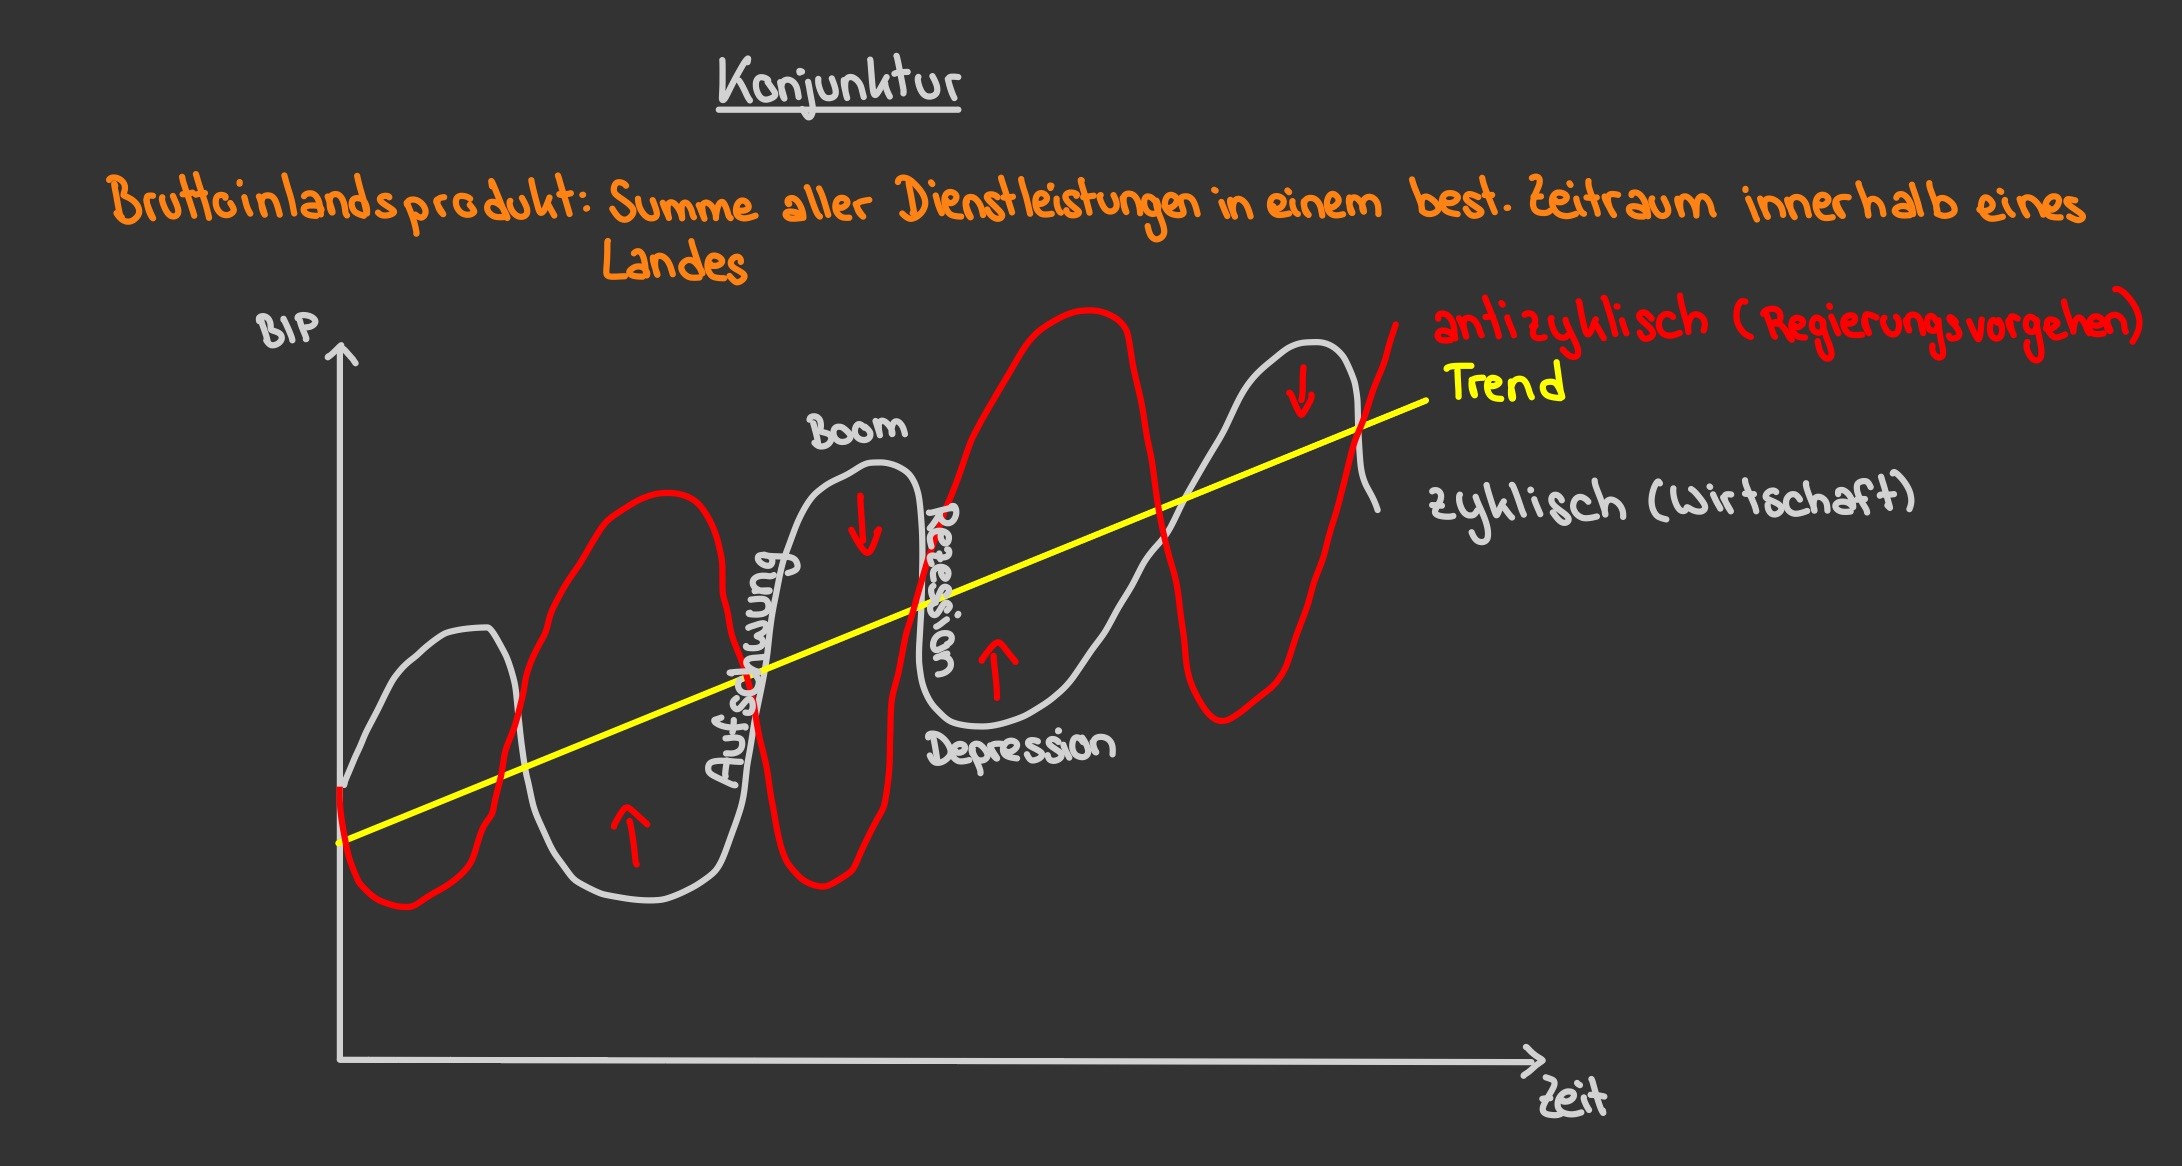 Konjunktur
Bruttoinlandsprodukt: Summe aller Dienstleistungen in einem best. Zeitraum innerhalb eines
Landes
BIP
antizyklisch (Regierungsvorgehen)
Trend
Boom
zyklisch (Wirtschaft)
Aufschwung
Rezession
Depression
Zeit